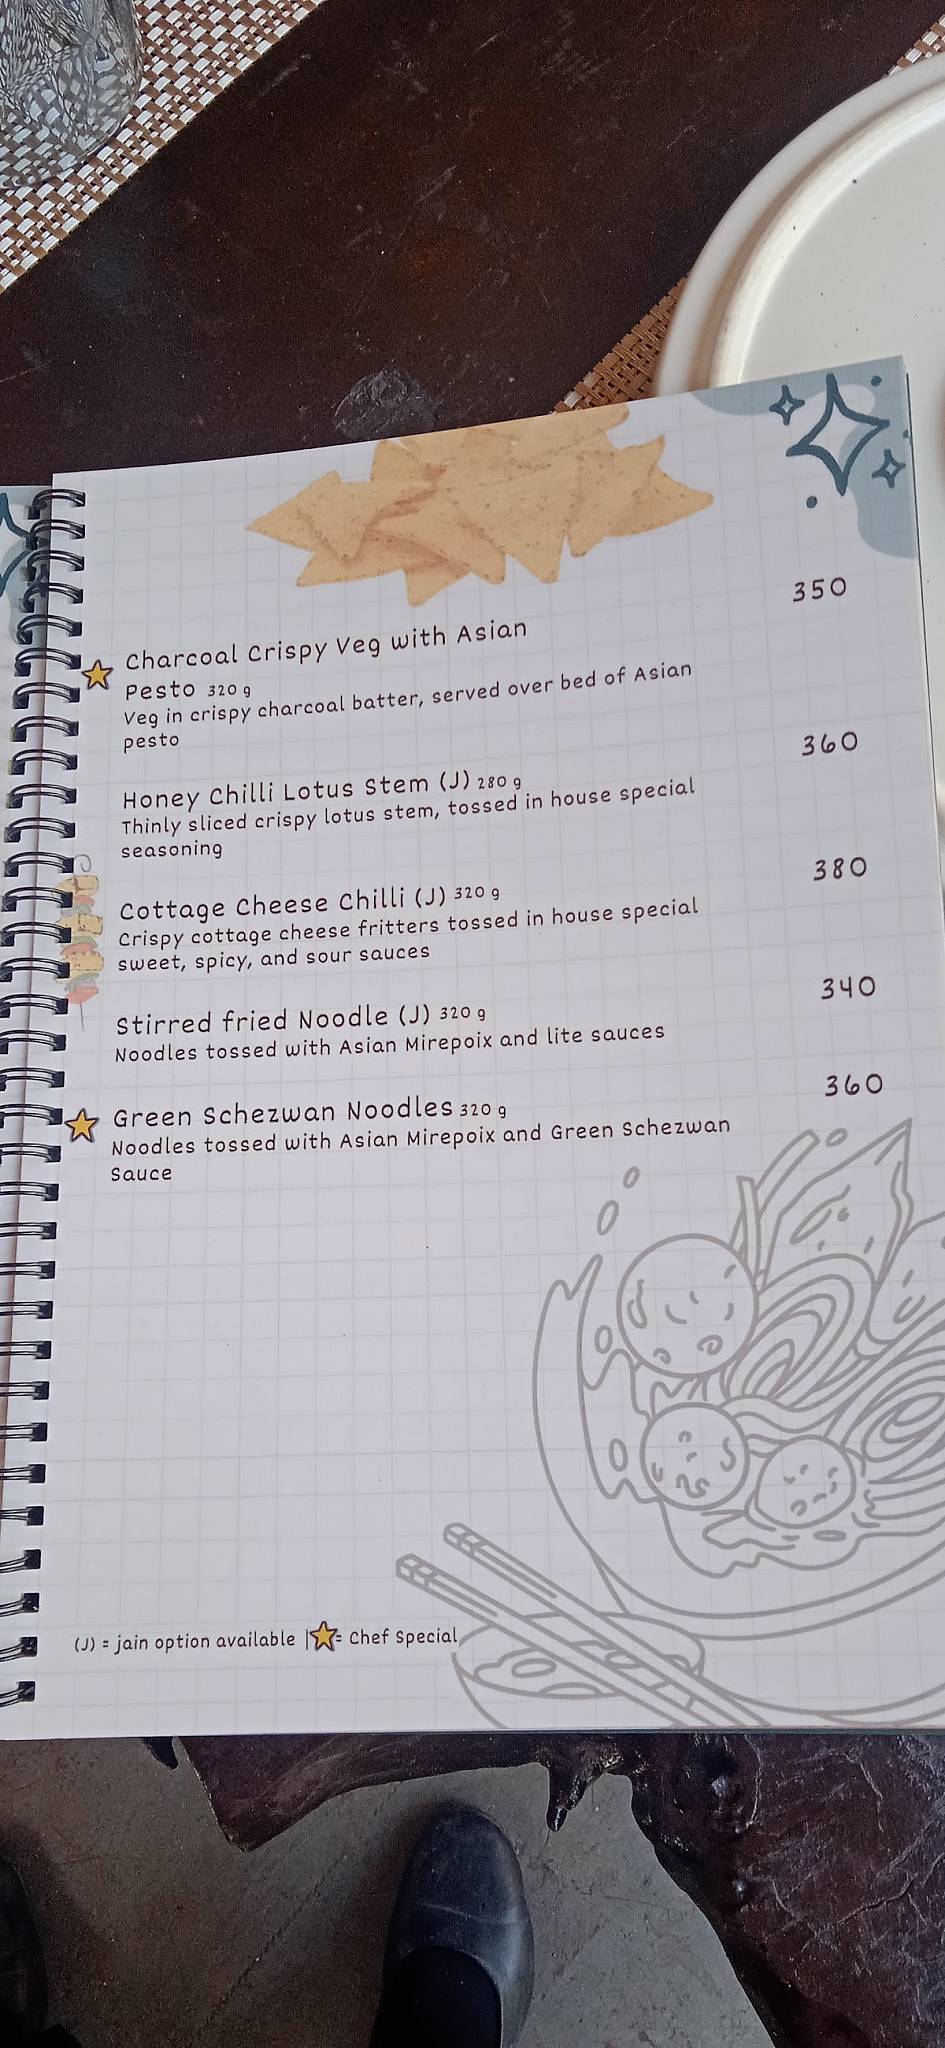 350
Charcoal Crispy Veg with Asian
Pesto 320 g
Veg in crispy charcoal batter, served over bed of Asian
pesto
360
Honey Chilli Lotus Stem (J) 280 g
Thinly sliced crispy lotus stem, tossed in house special
seasoning
380
Cottage Cheese Chilli (J) 320 g
Crispy cottage cheese fritters tossed in house special
sweet, spicy, and sour sauces
340
Stirred fried Noodle (J) 320 g
Noodles tossed with Asian Mirepoix and lite sauces
360
Green Schezwan Noodles 320 g
Noodles tossed with Asian Mirepoix and Green Schezwan
Sauce
(J) = jain option available | = Chef Special